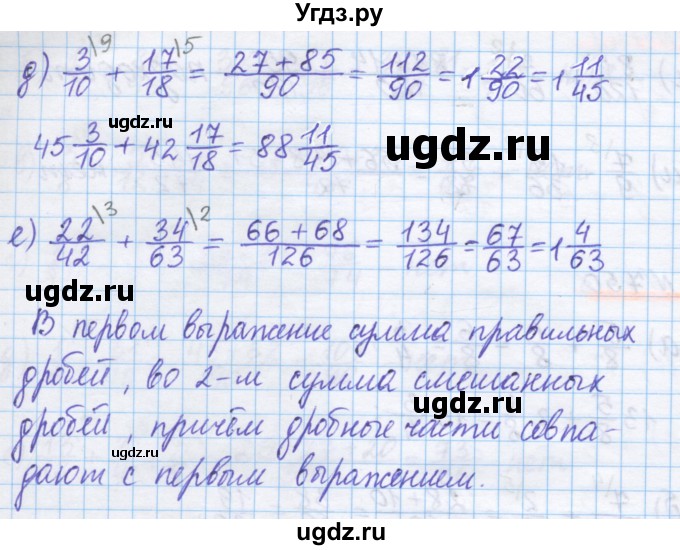 Угдз.ру
д) 3/10 \9 + 17/18 \5 = 27+85/90 = 112/90 = 1 22/90 = 1 11/45
ugdz.ru
45 3/10 + 42 17/18 = 88 11/45
ugdz.ru
ugdz.ru
е) 22/42 \3 + 34/63 \2 = 66+68/126 = 134/126 = 67/63 = 1 4/63
ugdz.ru
ugdz.ru
В первом выражение сумма правильных
дробей, во 2-м сумма смешанных
ugdz.ru
дробей, причём дробные части совпа-
ugdz.ru
дают с первым выражением.
ugdz.ru
ugdz.ru